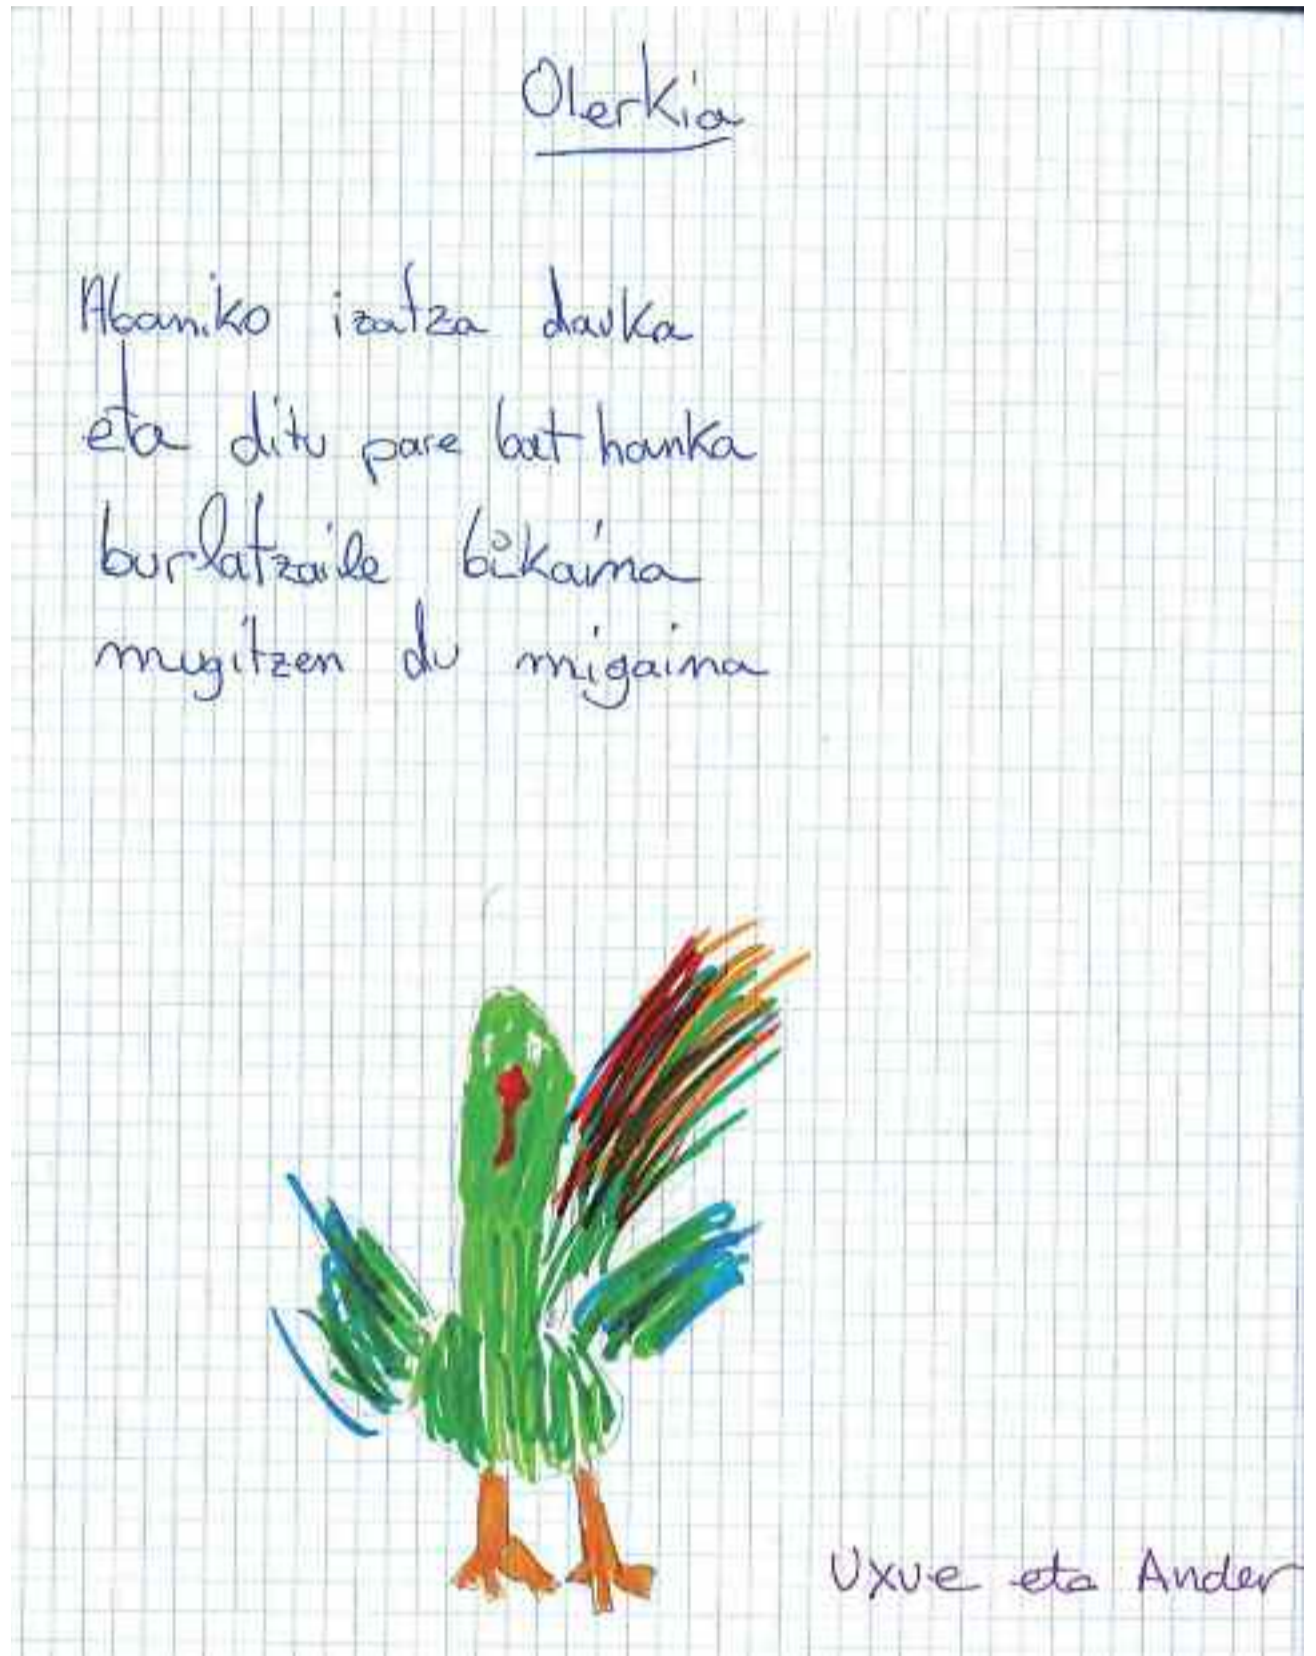 Olerkia
Abaniko izatza dauka
eta ditu pare bat hanka
burlatzaile bikaina
mugitzen du migaina
Uxue eta Ander